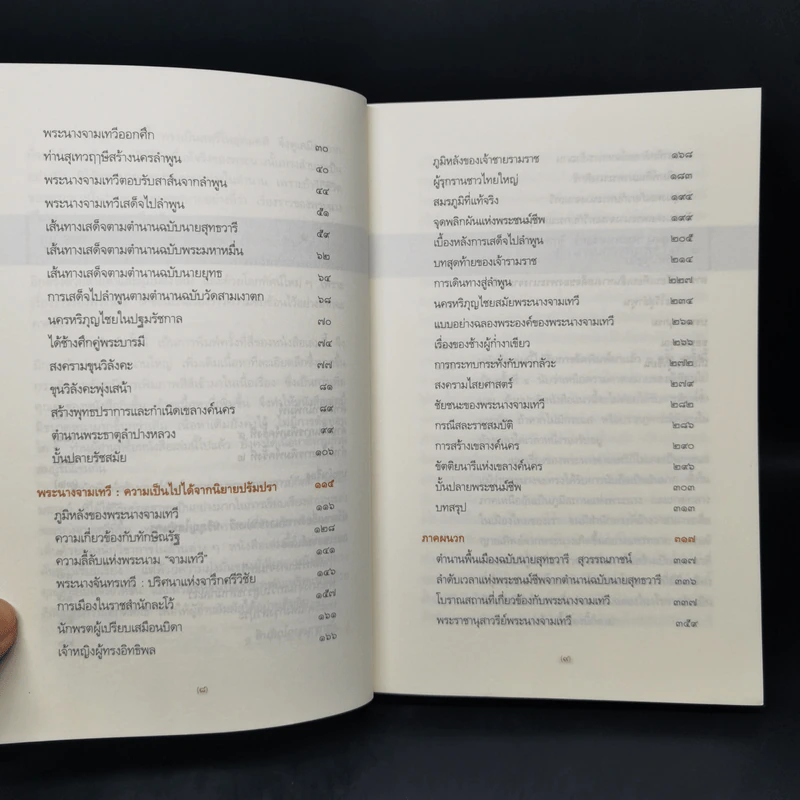 พระนางจามเทวีออกศึก ๓๐
ท่านสุเทวฤาษีสร้างนครลำพูน ๔๐
พระนางจามเทวีตอบรับสาส์นจากลำพูน ๔๔
พระนางจามเทวีเสด็จไปลำพูน ๕๑
เส้นทางเสด็จตามตำนานฉบับนายสุทธวารี ๕๙
เส้นทางเสด็จตามตำนานฉบับพระมหาหมื่น ๖๒
เส้นทางเสด็จตามตำนานฉบับนายยุทธ ๖๔
การเสด็จไปลำพูนตามตำนานฉบับวัดสามเงาตก ๖๘
นครหริภุญไชยในปฐมรัชกาล ๗๐
ได้ช้างศึกคู่พระบารมี ๗๔
สงครามขุนวิลังคะ ๗๗
ขุนวิลังคะพุ่งเสน้า ๘๑
สร้างพุทธปราการและกำเนิดเขลางค์นคร ๘๙
ตำนานพระธาตุลำปางหลวง ๙๙
บั้นปลายรัชสมัย ๑๐๖
พระนางจามเทวี : ความเป็นไปได้จากนิยายปรัมปรา ๑๑๔
ภูมิหลังของพระนางจามเทวี ๑๑๖
ความเกี่ยวข้องกับทักษิณรัฐ ๑๒๘
ความลี้ลับแห่งพระนาม "จามเทวี" ๑๔๑
พระนางจันทรเทวี : ปริศนาแห่งจารึกศรีวิชัย ๑๔๖
การเมืองในราชสำนักละโว้ ๑๕๗
นักพรตผู้เปรียบเสมือนบิดา ๑๖๑
เจ้าหญิงผู้ทรงอิทธิพล ๑๖๖
(๘)
ภูมิหลังของเจ้าชายรามราช ๑๖๘
ผู้รุกรานชาวไทยใหญ่ ๑๘๓
สมรภูมิที่แท้จริง ๑๙๔
จุดพลิกผันแห่งพระชนม์ชีพ ๑๙๙
เบื้องหลังการเสด็จไปลำพูน ๒๐๕
บทสุดท้ายของเจ้ารามราช ๒๑๔
การเดินทางสู่ลำพูน ๒๒๗
นครหริภุญไชยสมัยพระนางจามเทวี ๒๓๔
แบบอย่างฉลองพระองค์ของพระนางจามเทวี ๒๖๑
เรื่องของช้างผู้ก่ำงาเขียว ๒๖๖
การกระทบกระทั่งกับพวกลัวะ ๒๗๒
สงครามไสยศาสตร์ ๒๗๙
ชัยชนะของพระนางจามเทวี ๒๘๒
กรณีสละราชสมบัติ ๒๘๖
การสร้างเขลางค์นคร ๒๙๐
ขัตติยนารีแห่งเขลางค์นคร ๒๙๖
บั้นปลายพระชนม์ชีพ ๓๐๓
บทสรุป ๓๑๓
ภาคผนวก ๓๑๗
ตำนานพื้นเมืองฉบับนายสุทธวารี สุวรรณภาชน์ ๓๑๗
ลำดับเวลาแห่งพระชนม์ชีพจากตำนานฉบับนายสุทธวารี ๓๓๖
โบราณสถานที่เกี่ยวข้องกับพระนางจามเทวี ๓๓๗
พระราชานุสาวรีย์พระนางจามเทวี ๓๕๙
(๙)